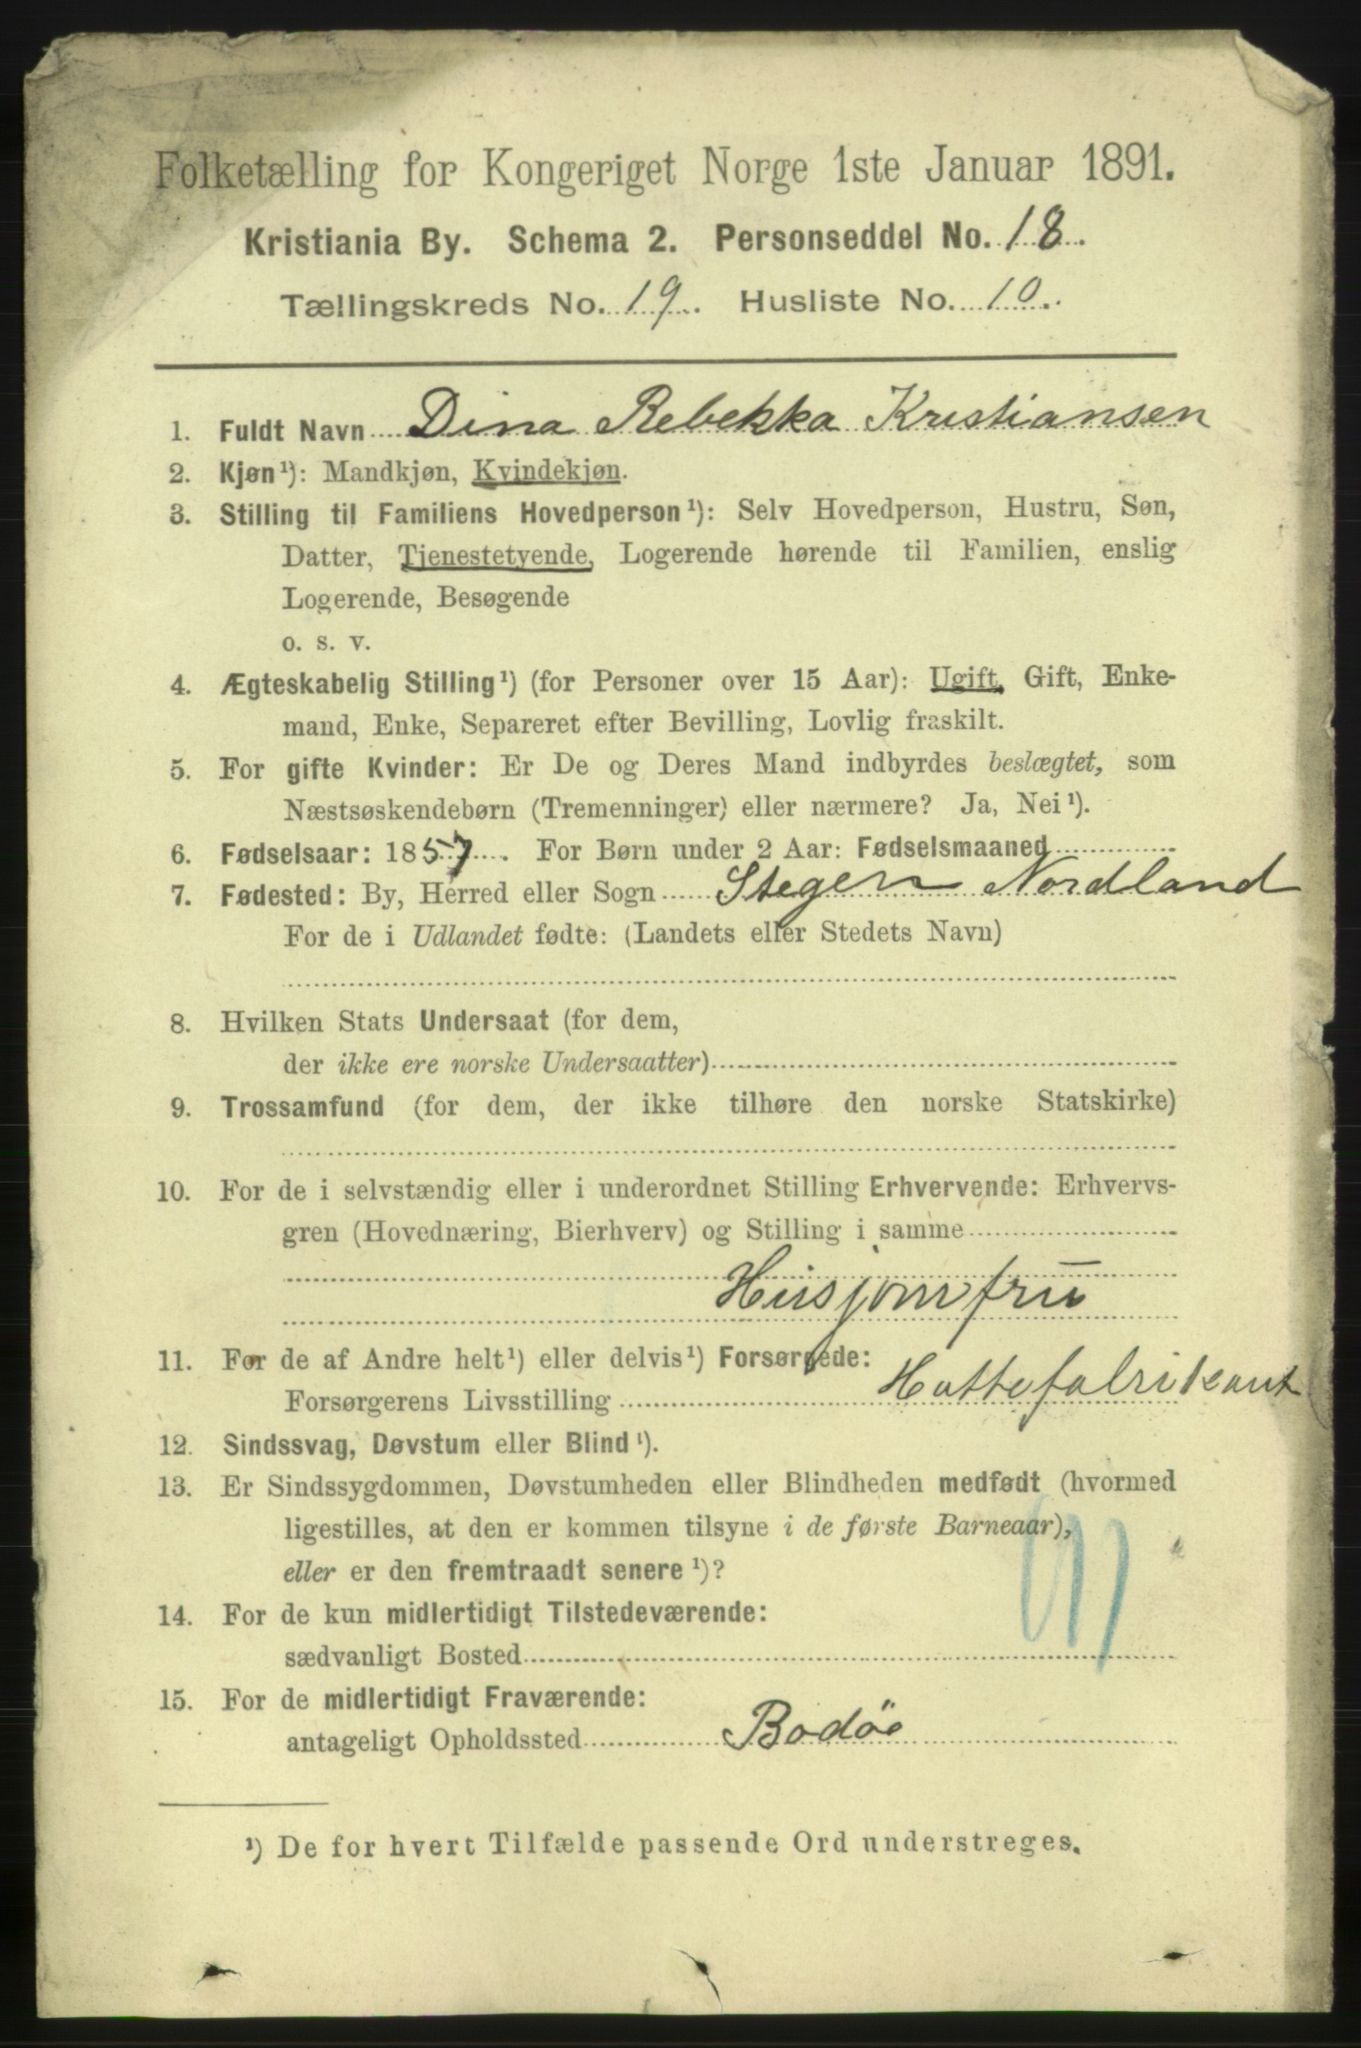 Folketælling for Kongeriget Norge 1ste Januar 1891.
Kristiania By. Schema 2. Personseddel No. 18.
Tællingskreds No. 19. Husliste No. 10.
1. Fuldt Navn Dina Rebekka Kristiansen
2. Kjøn¹): Mandkjøn, Kvindekjøn.
3. Stilling til Familiens Hovedperson¹): Selv Hovedperson, Hustru, Søn,
Datter, Tjenestetyende, Logerende hørende til Familien, enslig
Logerende, Besøgende
o. s. v.
4. Ægteskabelig Stilling¹) (for Personer over 15 Aar): Ugift, Gift, Enke-
mand, Enke, Separeret efter Bevilling, Lovlig fraskilt.
5. For gifte Kvinder: Er De og Deres Mand indbyrdes beslægtet, som
Næstsøskendebørn (Tremenninger) eller nærmere? Ja, Nei¹).
6. Fødselsaar: 1857. For Børn under 2 Aar: Fødselsmaaned
7. Fødested: By, Herred eller Sogn Stegen Nordland
For de i Udlandet fødte: (Landets eller Stedets Navn)
8. Hvilken Stats Undersaat (for dem,
der ikke ere norske Undersaatter)
9. Trossamfund (for dem, der ikke tilhøre den norske Statskirke)
10. For de i selvstændig eller i underordnet Stilling Erhvervende: Erhvervs-
gren (Hovednæring, Bierhverv) og Stilling i samme
Husjomfru
11. For de af Andre helt¹) eller delvis¹) Forsørgede:
Forsørgerens Livsstilling Hattefabrikant
12. Sindssvag, Døvstum eller Blind¹).
13. Er Sindssygdommen, Døvstumheden eller Blindheden medfødt (hvormed
ligestilles, at den er kommen tilsyne i de første Barneaar),
eller er den fremtraadt senere¹)?
14. For de kun midlertidigt Tilstedeværende:
sædvanligt Bosted
15. For de midlertidigt Fraværende:
antageligt Opholdssted Bodöe
¹) De for hvert Tilfælde passende Ord understreges.